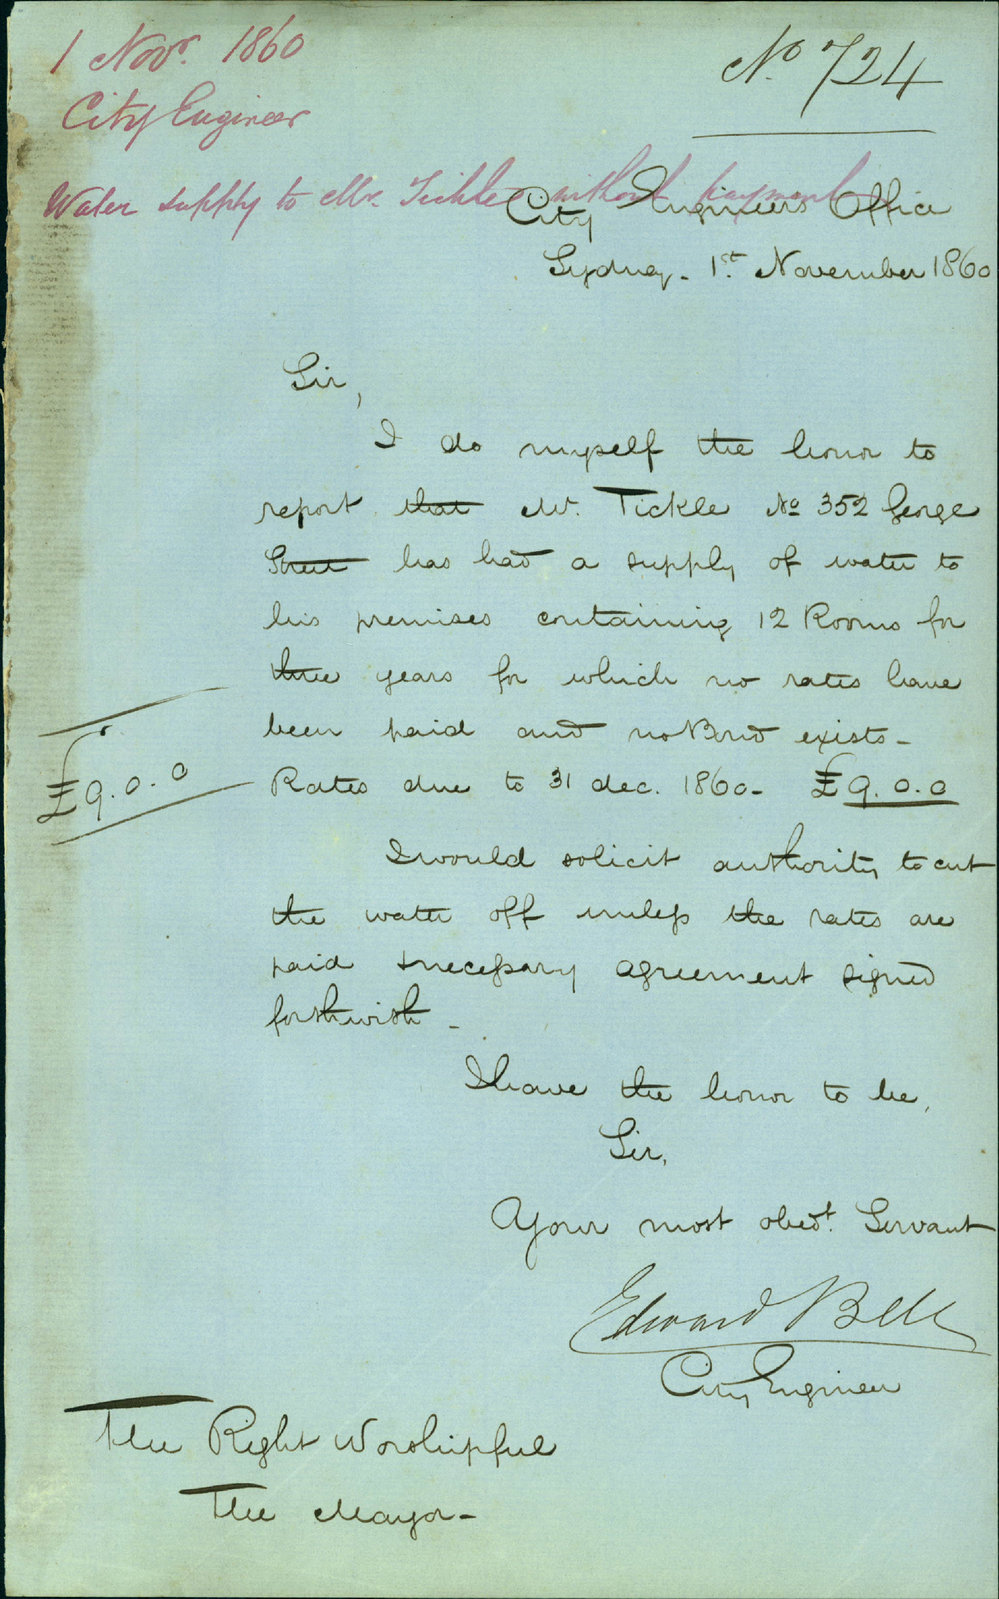 1 Novr. 1860
No 724
City Engineer
Water supply to Mr. Tickle without payment
City Engineers Office
Sydney - 1st November 1860
Sir,
I do myself the honor to
report that Mr. Tickle No 352 George
Street has had a supply of water to
his premises containing 12 Rooms for
three years for which no rates have
been paid and no Bond exists -
Rates due to 31 dec. 1860 - £9.0.0
£9.0.0
I would solicit authority to cut
the water off unless the rates are
paid & necessary agreement signed
forthwith -
I have the honor to be,
Sir,
Your most obedt. Servant
Edward Bell
City Engineer
The Right Worshipful
The Mayor -